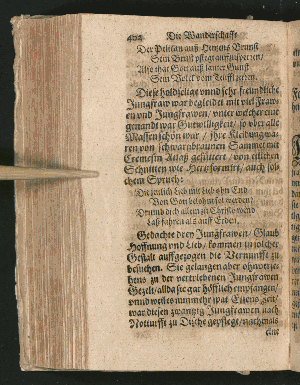 402 Die Wanderschafft
Der Pelican auß Hertzens Brunst
Sein Brust pflegt auffzuzerren/
Also that Gott auß lauter Gunst
Diese holdselige vnnd sehr freundliche
Jungfraw war begleidet mit viel Fraw-
en vnd Jungfrawen/ vnter welcher eine
genandt war Gutwilligkeit/ so vber alle
Massen schön war/ Ihre Kleidung wa-
ren von schwartzbraunen Sammet mit
Cremesin Atlaß gefüttert/ von etlichen
Schnitten wie
chem Spruch:
Die
Von Gott belohnet werden:
Drumb dich allein zu Christo wend
Laß fahren als auff Erden.
Gedachte drey Jungfrawen/ Glaub
Hoffnung vnd Lieb/ kommen in solcher
Gestalt auffgezogen die Vernunfft zu
besuchen. Sie gelangen aber ohnvorse-
hens zu der vertriebenen Jungfrawen
Gezelt/ allda sie gar höfflich empfangen/
vnnd weil es nunmehr was Essens zeit/
war diesen zwantzig Jungfrawen nach
Notturfft zu Tische gepflegt/ nachmals
eine